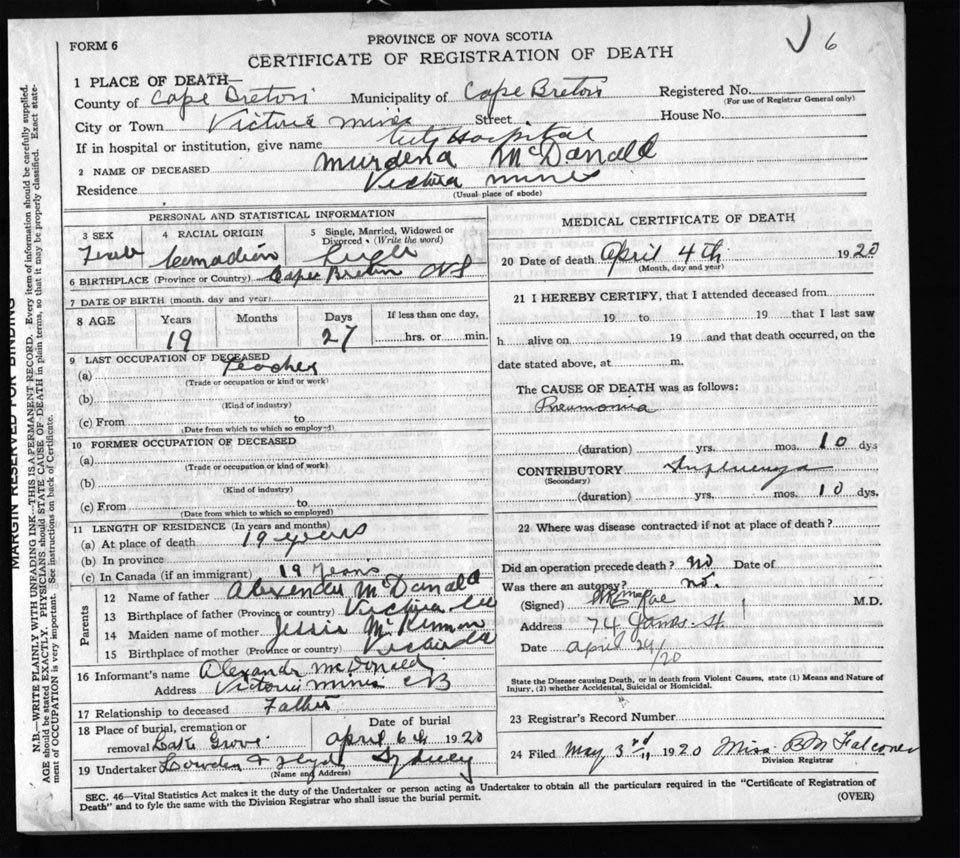 FORM 6
PROVINCE OF NOVA SCOTIA
CERTIFICATE OF REGISTRATION OF DEATH
6
1 PLACE OF DEATH—
County of Cape Breton Municipality of Cape Breton Registered No.
(For use of Registrar General only)
City or Town Victoria Mines Street House No.
If in hospital or institution, give name City Hospital
2 NAME OF DECEASED Murdena McDonald
Residence Victoria Mines
(Usual place of abode)
PERSONAL AND STATISTICAL INFORMATION
3 SEX 4 RACIAL ORIGIN 5 Single, Married, Widowed or Divorced (Write the word)
Canadian Single
6 BIRTHPLACE (Province or Country) Cape Breton NS
7 DATE OF BIRTH (month, day and year)
8 AGE Years Months Days If less than one day,
19 27 hrs. or min.
9 LAST OCCUPATION OF DECEASED
(a) Teacher
(Trade or occupation or kind or work)
(b)
(Kind of industry)
(c) From to
(Date from which to which so employed)
10 FORMER OCCUPATION OF DECEASED
(a)
(Trade or occupation or kind of work)
(b)
(Kind of industry)
(c) From to
(Date from which to which so employed)
11 LENGTH OF RESIDENCE (In years and months)
(a) At place of death 19 years
(b) In province
(c) In Canada (if an immigrant) 19 years
Parents
12 Name of father Alexender McDonald
13 Birthplace of father (Province or country) Victoria
14 Maiden name of mother Jessie McKinnon
15 Birthplace of mother (Province or country)
16 Informant's name Alexandr McDonald
Address Victoria Mines CB
17 Relationship to deceased Father
18 Place of burial, cremation or removal Grove Date of burial April 6th 1920
19 Undertaker Sydney
(Name and Address)
MEDICAL CERTIFICATE OF DEATH
20 Date of death April 4th 1920
(Month, day and year)
21 I HEREBY CERTIFY, that I attended deceased from
19 to 19 that I last saw
h alive on 19 and that death occurred, on the
date stated above, at m.
The CAUSE OF DEATH was as follows:
Pneumonia
(duration) yrs. mos. 10 dys
CONTRIBUTORY Influenza
(Secondary)
(duration) yrs. mos. 10 dys.
22 Where was disease contracted if not at place of death?
Did an operation precede death? No Date of
Was there an autopsy? No.
(Signed) M.D.
Address 74 St
Date April 29/20
State the Disease causing Death, or in death from Violent Causes, state (1) Means and Nature of Injury, (2) whether Accidental, Suicidal or Homicidal.
23 Registrar's Record Number
24 Filed May 3rd 1920 Miss B M Falconer
Division Registrar
SEC. 46—Vital Statistics Act makes it the duty of the Undertaker or person acting as Undertaker to obtain all the particulars required in the "Certificate of Registration of
Death" and to fyle the same with the Division Registrar who shall issue the burial permit.
(OVER)
MARGIN RESERVED FOR BINDING
N.B.—WRITE PLAINLY WITH UNFADING INK—THIS IS A PERMANENT RECORD. Every item of information should be carefully supplied.
AGE should be stated EXACTLY. PHYSICIANS should STATE CAUSE OF DEATH in plain terms, so that it may be properly classified. Exact statement of OCCUPATION is very important. See instructions on back of Certificate.